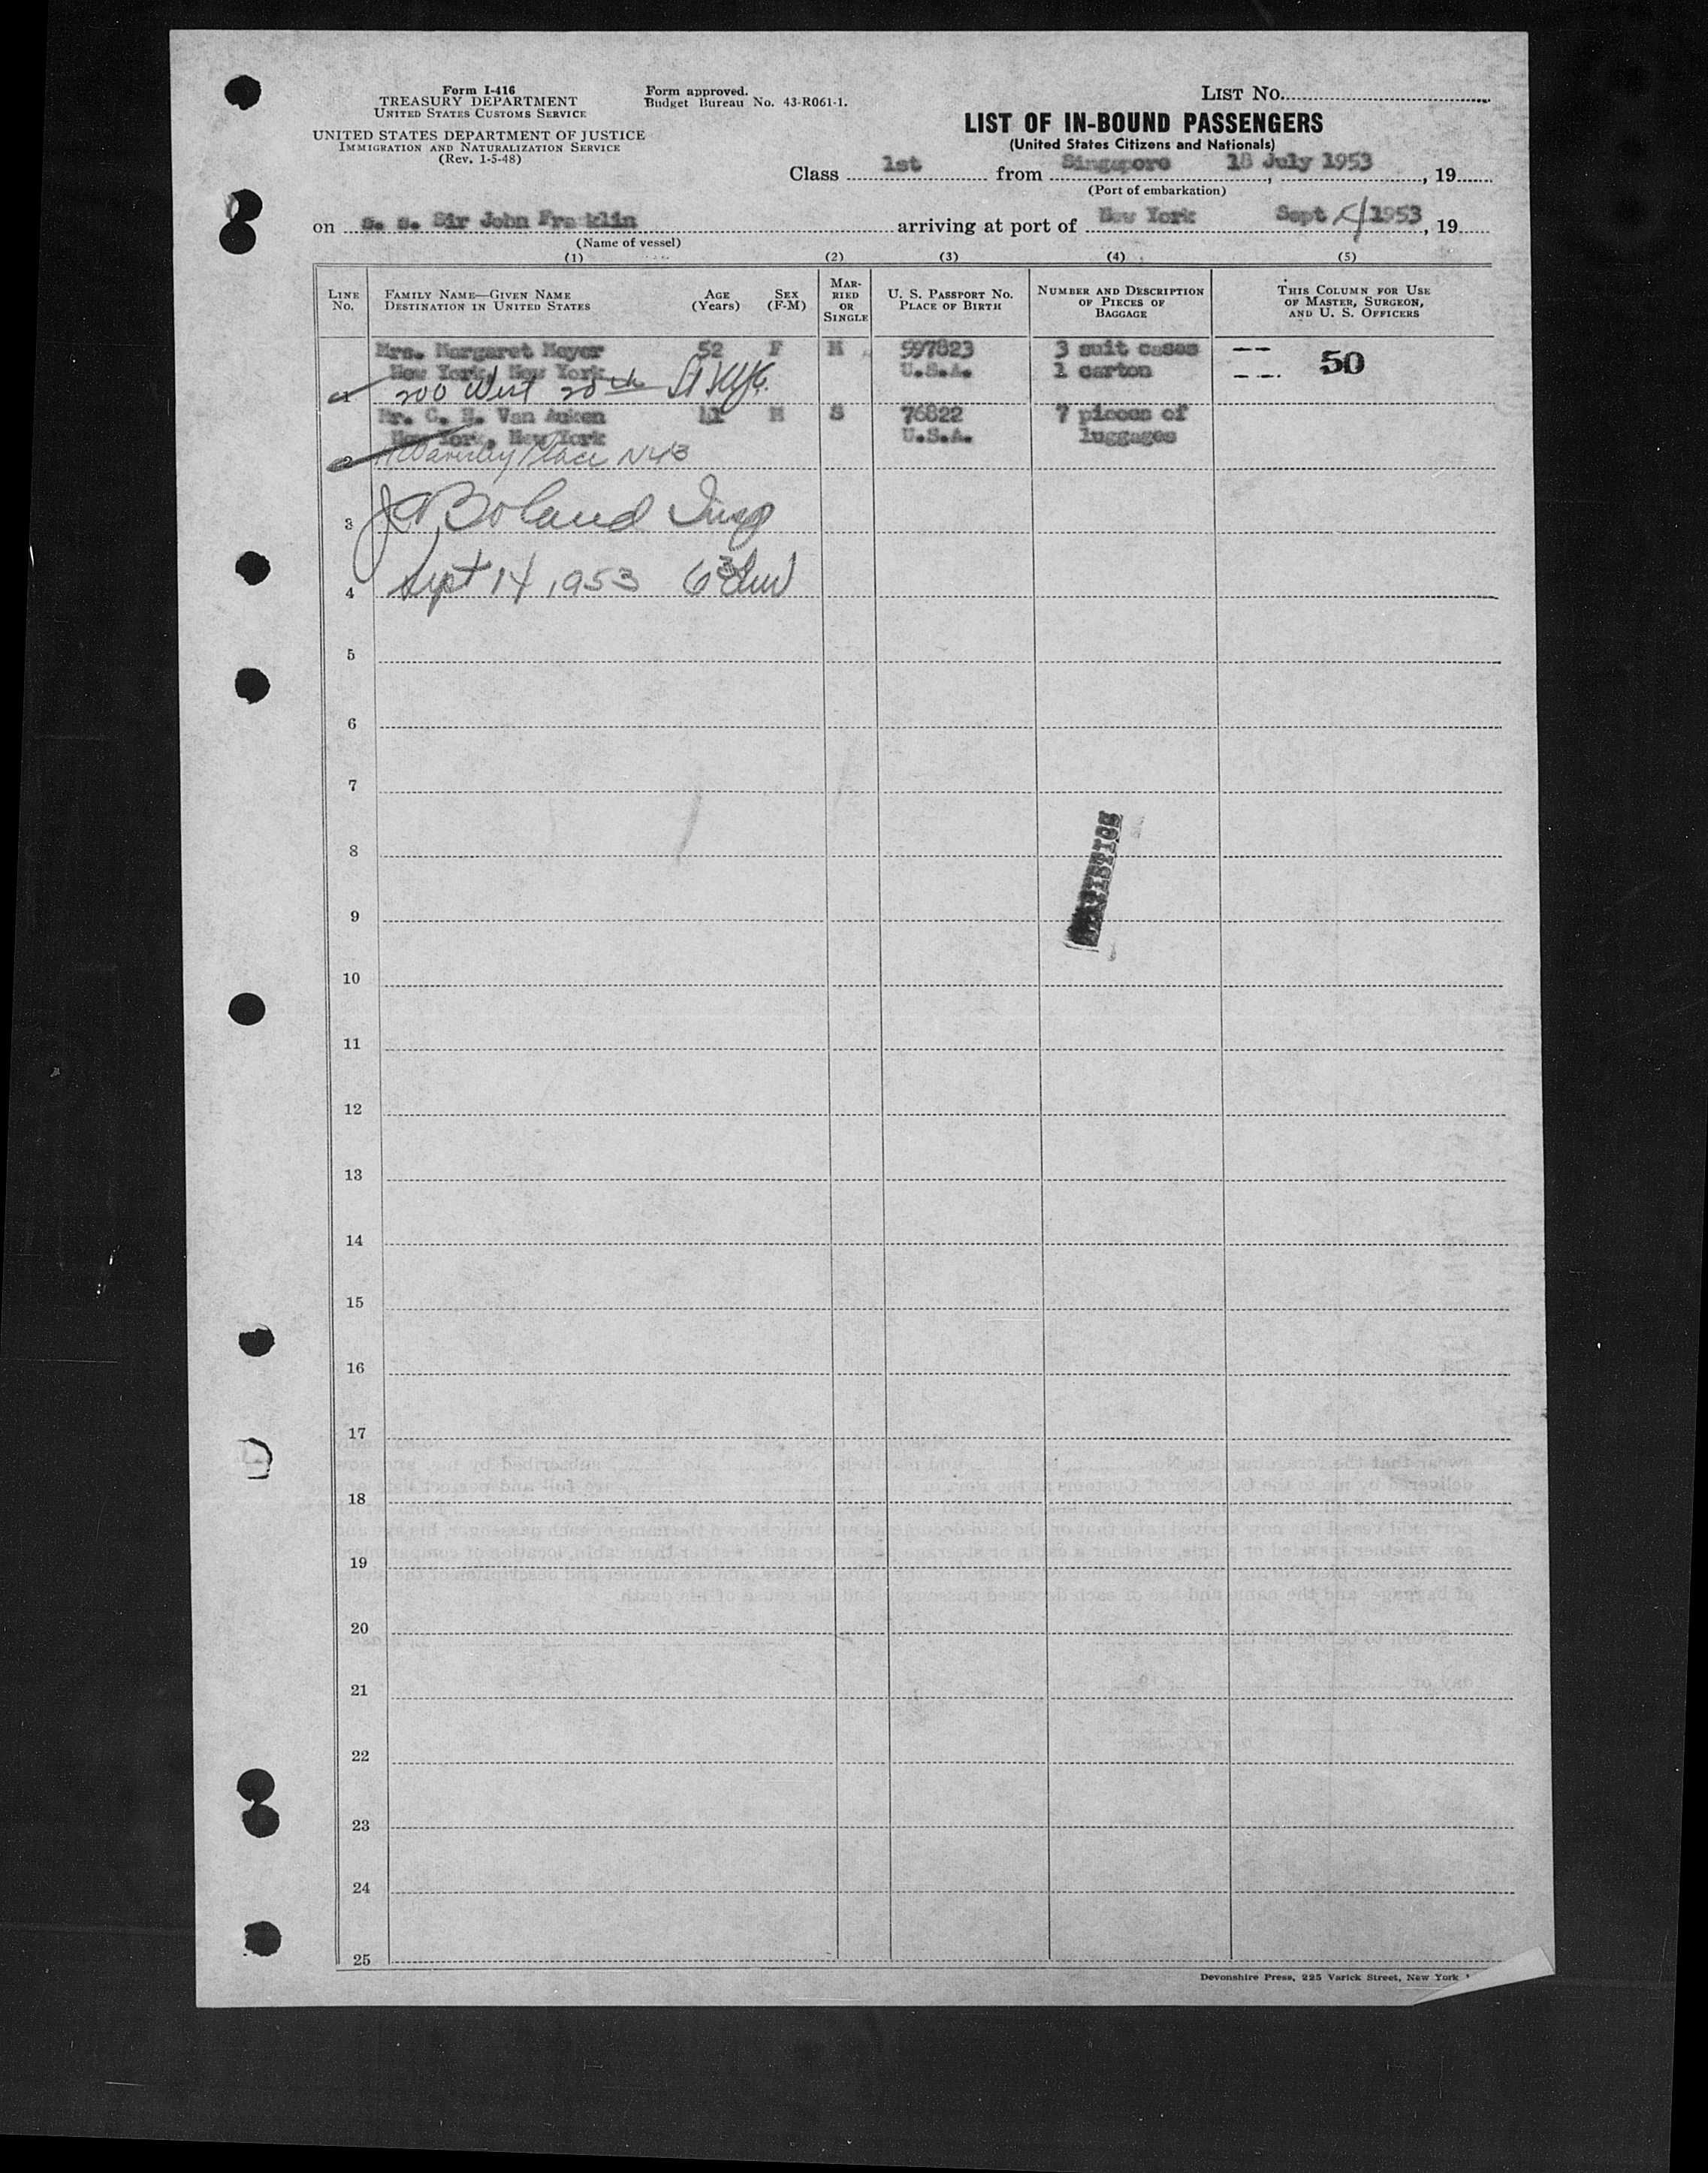 Form I-416
TREASURY DEPARTMENT
UNITED STATES CUSTOMS SERVICE
UNITED STATES DEPARTMENT OF JUSTICE
IMMIGRATION AND NATURALIZATION SERVICE
(Rev. 1-5-48)
Form approved.
Budget Bureau No. 43-R061-1.
LIST NO.
LIST OF IN-BOUND PASSENGERS
(United States Citizens and Nationals)
Class 1st from Singapore 18 July 1953, 19
(Port of embarkation)
on S. S. Sir John Franklin arriving at port of New York Sept 1953, 19
(Name of vessel)
(1) (2) (3) (4) (5)
LINE NO. FAMILY NAME—GIVEN NAME DESTINATION IN UNITED STATES AGE (Years) SEX (F-M) MARRIED OR SINGLE U. S. PASSPORT NO. PLACE OF BIRTH NUMBER AND DESCRIPTION OF PIECES OF BAGGAGE THIS COLUMN FOR USE OF MASTER, SURGEON, AND U. S. OFFICERS
Mrs. Margaret Meyer 52 F M 597823 3 suit cases -- 50
New York, New York U.S.A. 1 carton -- -.
1 200 West 20th St NYC.
Mr. C. H. Van Auken 41 M S 76822 7 pieces of
New York, New York U.S.A. luggages
2 Waverley Place NYC
3 J A Boland Insp
4 Sept 14, 1953
5
6
7
8
9
10
11
12
13
14
15
16
17
18
19
20
21
22
23
24
25
Devonshire Press, 225 Varick Street, New York